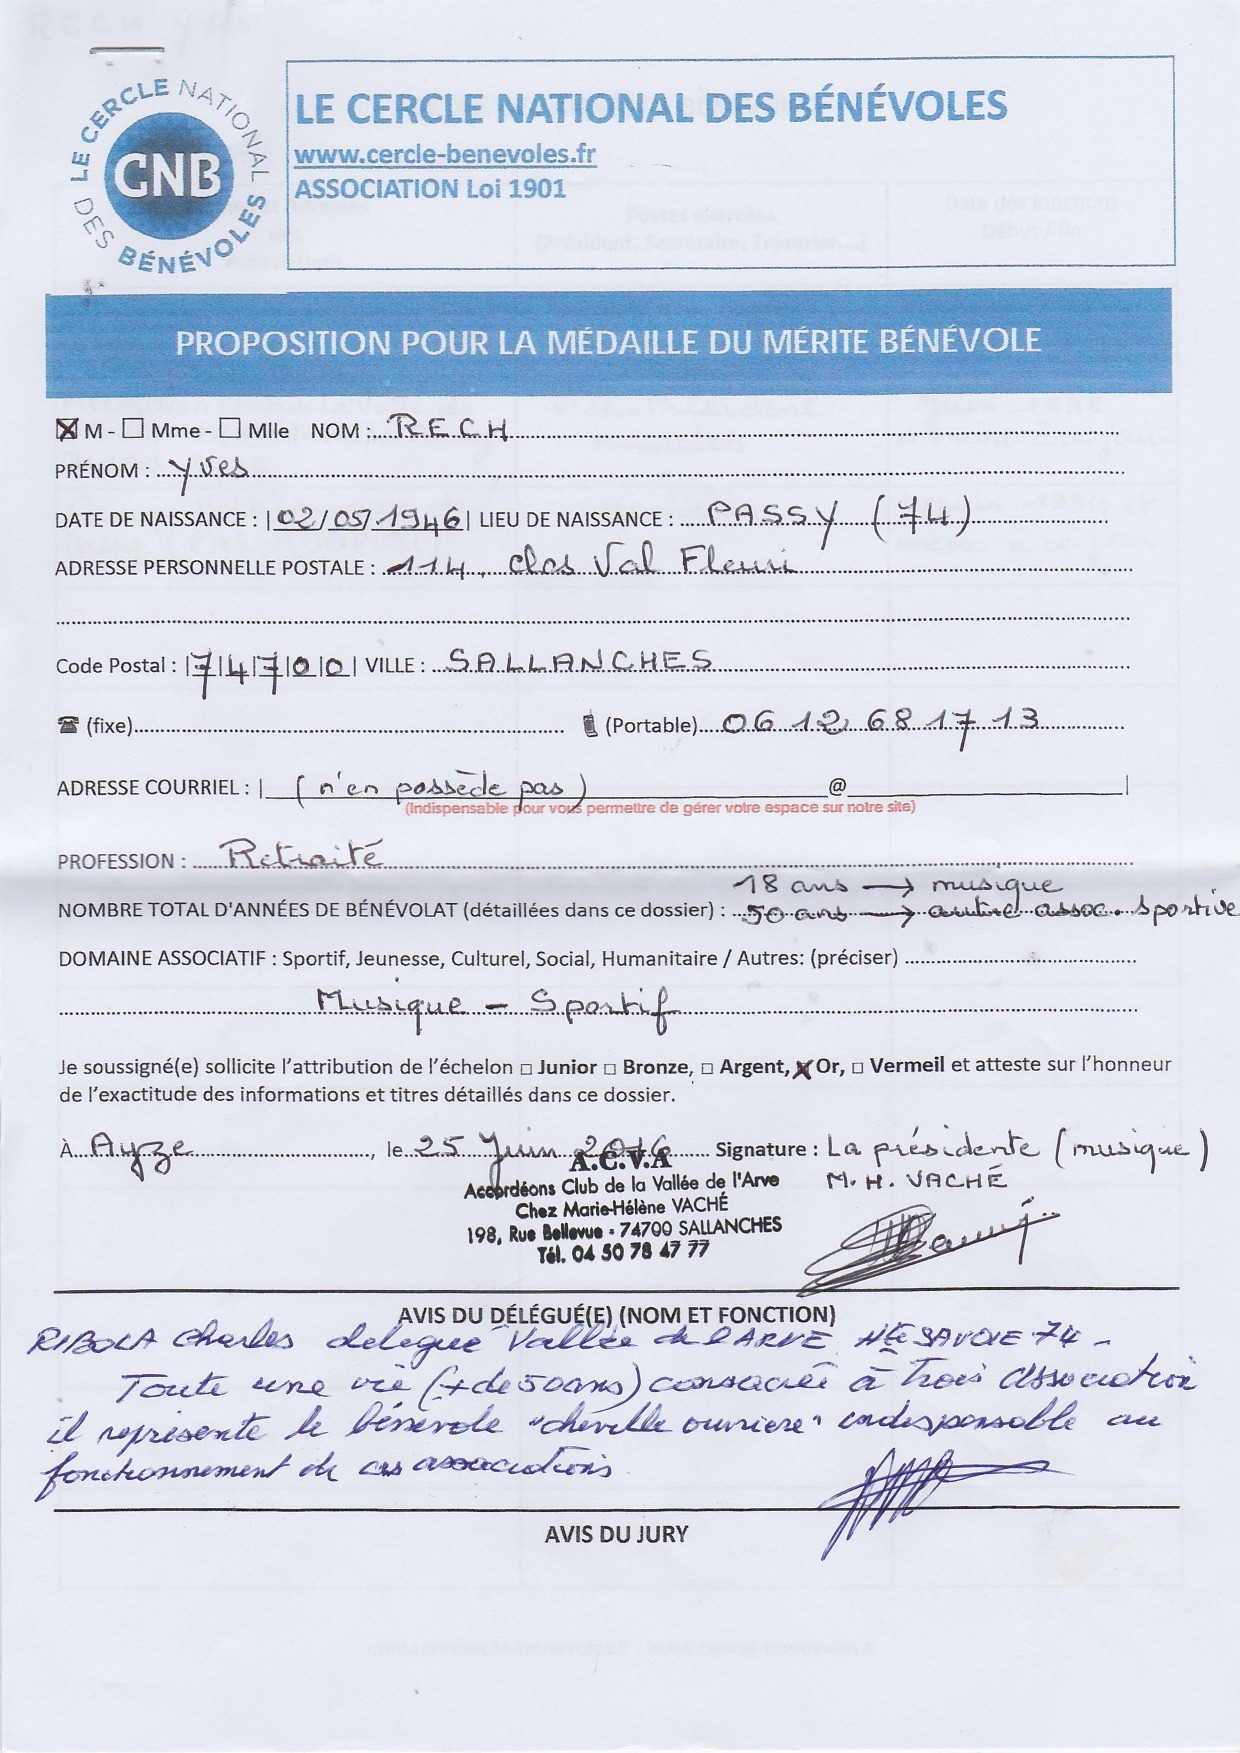 LE CERCLE NATIONAL DES BÉNÉVOLES
CNB
LE CERCLE NATIONAL DES BÉNÉVOLES
www.cercle-benevoles.fr
ASSOCIATION Loi 1901
PROPOSITION POUR LA MÉDAILLE DU MÉRITE BÉNÉVOLE
☒ M - ☐ Mme - ☐ Mlle NOM : RECH
PRÉNOM : Yves
DATE DE NAISSANCE : |02/05/1946| LIEU DE NAISSANCE : PASSY (74)
ADRESSE PERSONNELLE POSTALE : 114, clos Val Fleuri
Code Postal : |7|4|7|0|0| VILLE : SALLANCHES
☎ (fixe) (Portable) 06 12 68 17 13
ADRESSE COURRIEL : | (n'en possède pas) @ |
(Indispensable pour vous permettre de gérer votre espace sur notre site)
PROFESSION : Retraité
18 ans → musique
NOMBRE TOTAL D'ANNÉES DE BÉNÉVOLAT (détaillées dans ce dossier) : 50 ans → autre assoc. sportive
DOMAINE ASSOCIATIF : Sportif, Jeunesse, Culturel, Social, Humanitaire / Autres: (préciser)
Musique - Sportif
Je soussigné(e) sollicite l'attribution de l'échelon ☐ Junior ☐ Bronze, ☐ Argent, ☒ Or, ☐ Vermeil et atteste sur l'honneur
de l'exactitude des informations et titres détaillés dans ce dossier.
À Ayze, le 25 Juin 2016 Signature : La présidente (musique)
M.H. VACHÉ
A.C.V.A
Accordéons Club de la Vallée de l'Arve
Chez Marie-Hélène VACHÉ
198, Rue Bellevue - 74700 SALLANCHES
Tél. 04 50 78 47 77
AVIS DU DÉLÉGUÉ(E) (NOM ET FONCTION)
Charles délégué Vallée de l'ARVE Hte SAVOIE 74 -
Toute une vie (+ de 50 ans) consacrée à trois association
il représente le bénévole "cheville ouvriere" indispensable au
fonctionnement de ces associations
AVIS DU JURY